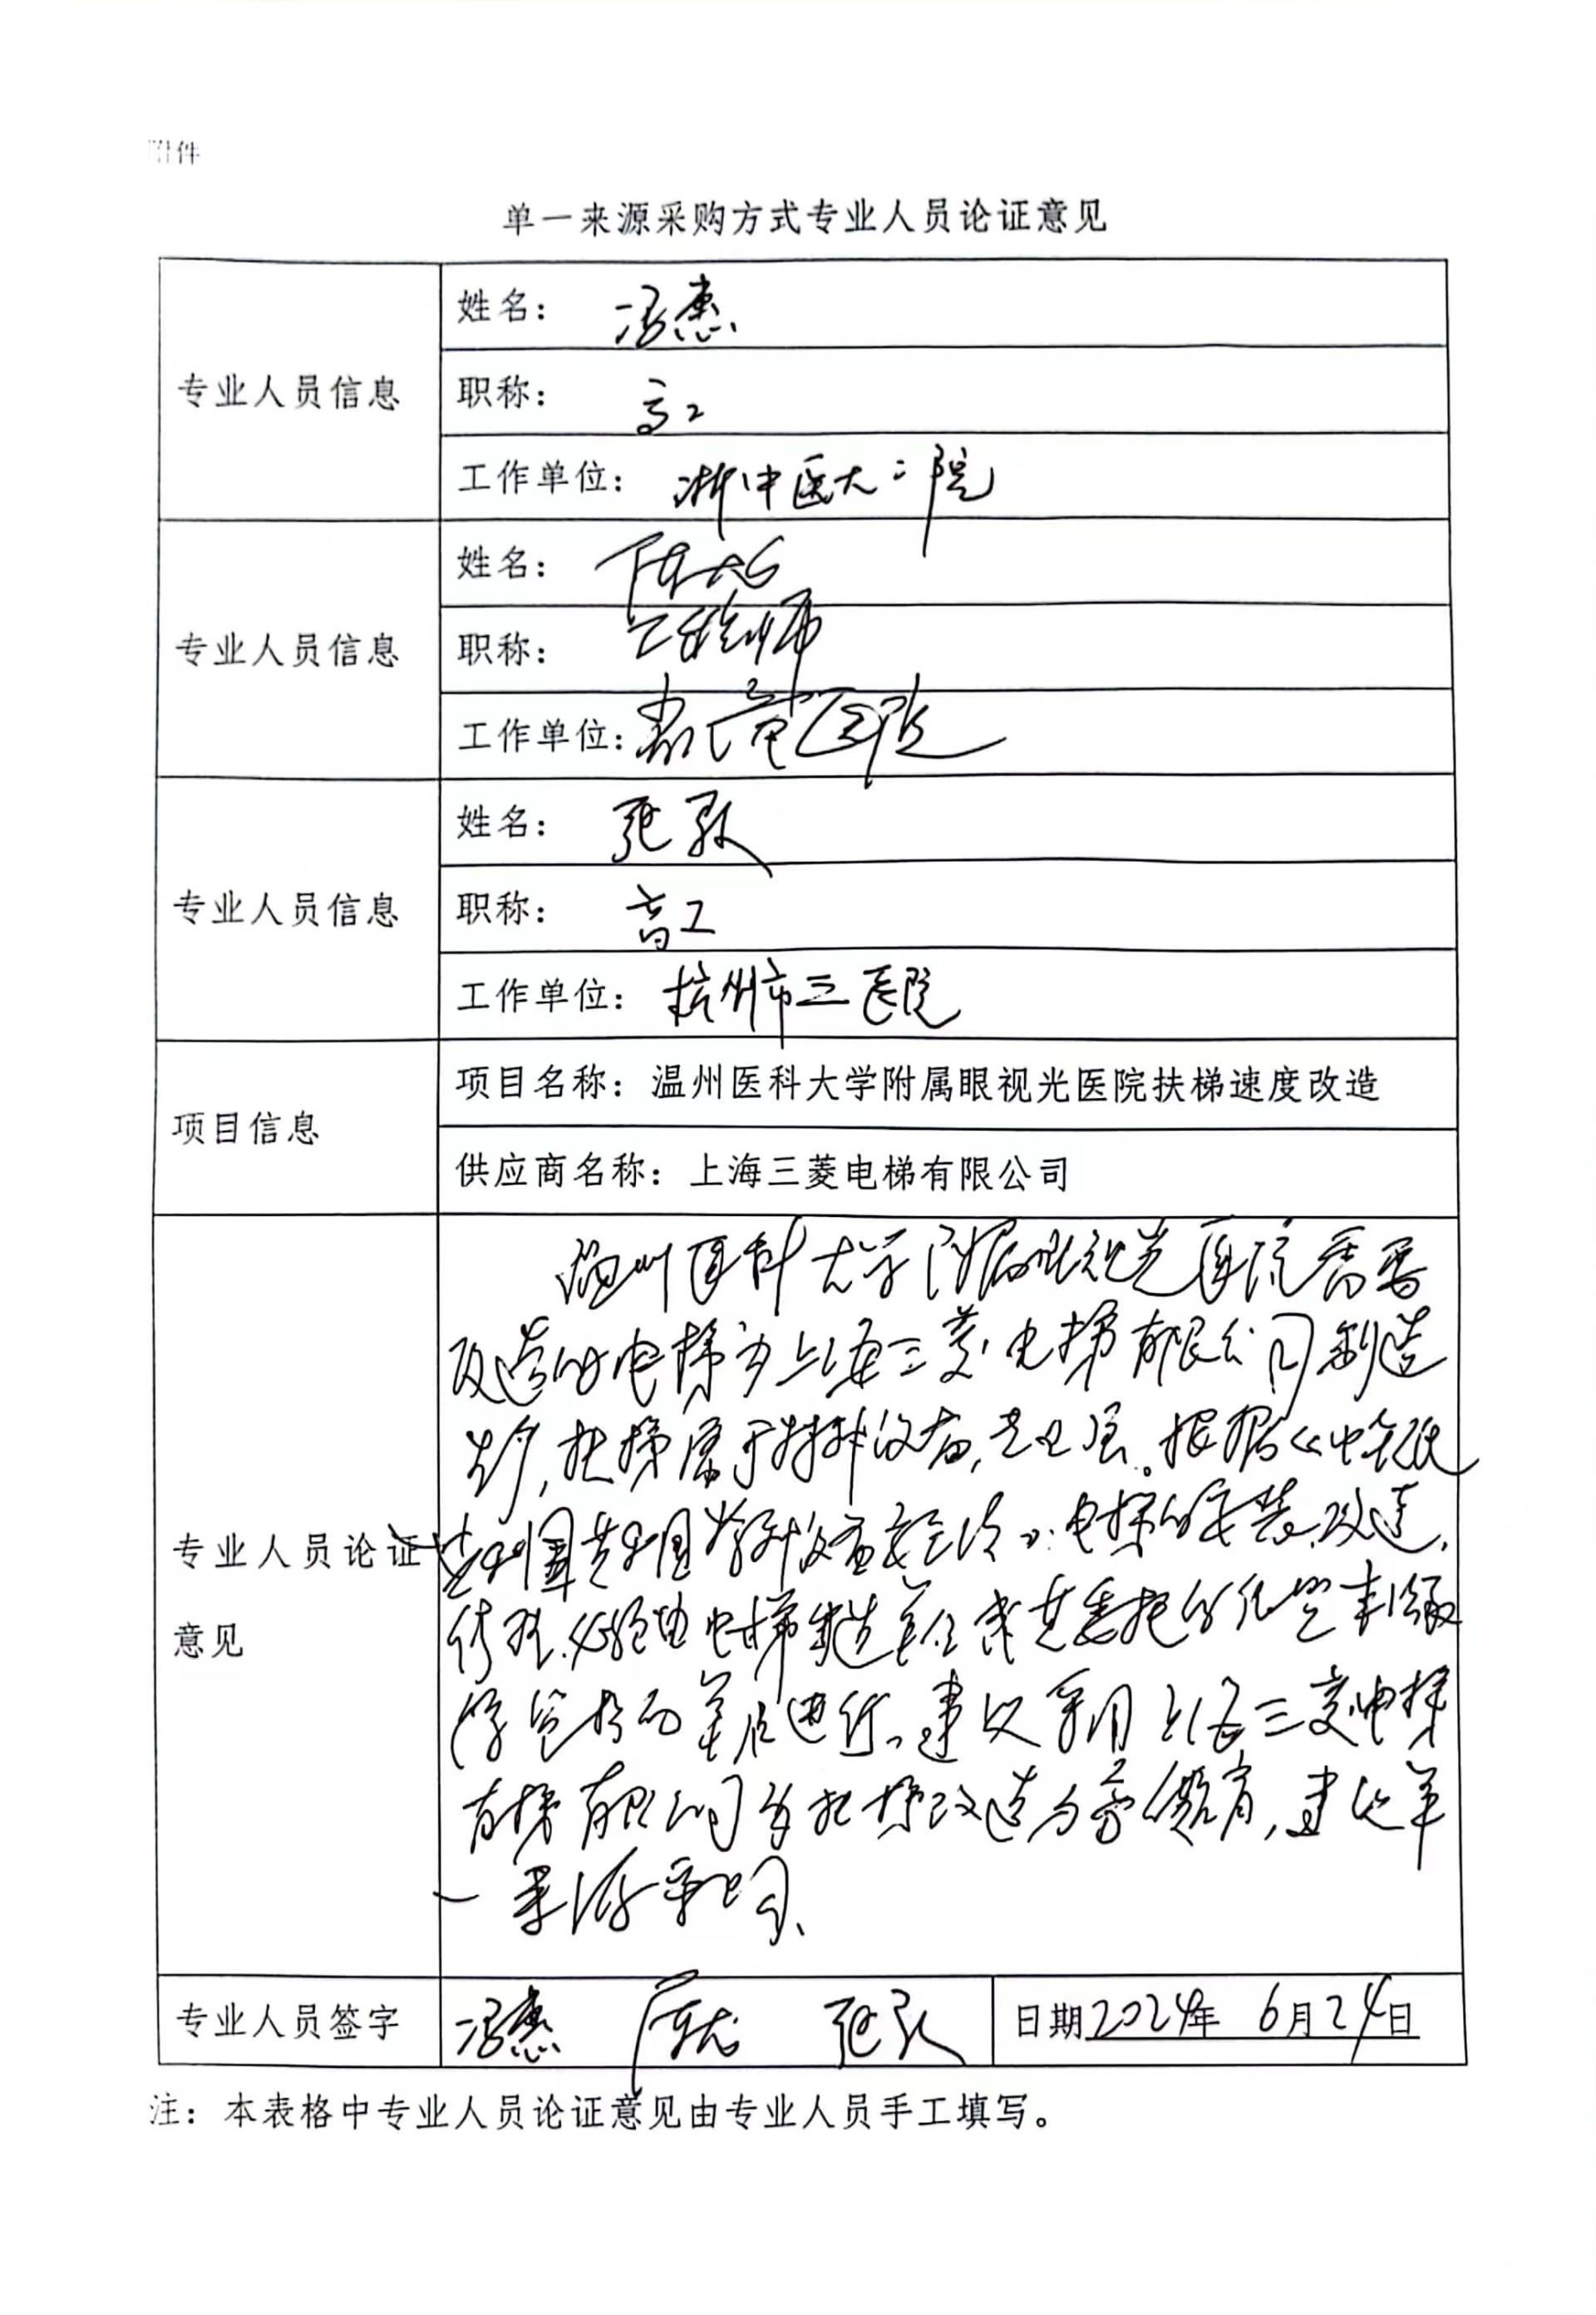 附件
单一来源采购方式专业人员论证意见
专业人员信息
姓名：冯惠
职称：高工
工作单位：浙中医大二院
专业人员信息
姓名：陈
职称：工程师
工作单位：医院
专业人员信息
姓名：张
职称：高工
工作单位：杭州市三医院
项目信息
项目名称：温州医科大学附属眼视光医院扶梯速度改造
供应商名称：上海三菱电梯有限公司
专业人员论证
意见
温州医科大学附属眼视光医院需要
改造的电梯为上海三菱电梯有限公司制造
扶梯属于特种设备，根据《中华人民
共和国特种设备安全法》：电梯的安装、改造、
修理，必须由电梯制造单位或其委托的依照本法取
得许可的单位进行。建议采用上海三菱电梯
有限公司为扶梯改造，建议单
一来源采购、
专业人员签字
冯惠 陈 张
日期2024年 6月24日
注：本表格中专业人员论证意见由专业人员手工填写。